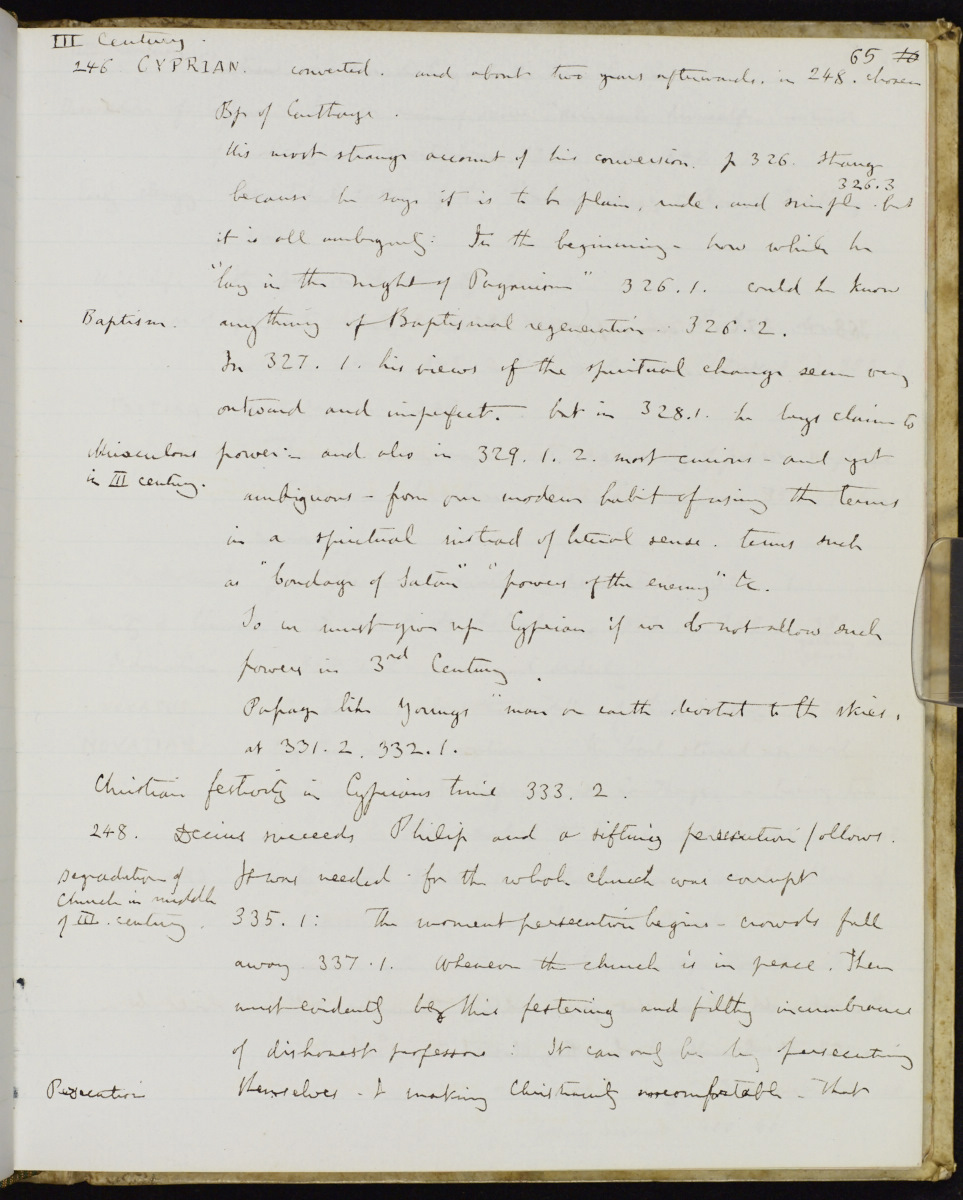 III Century.
65 16
246 CYPRIAN. converted. and about two years afterwards. in 248. chosen
Bp of Carthage.
His most strange account of his conversion. p 326. Strange
326.3
because he says it is to be plain, rude, and simple. but
it is all ambiguity: In the beginning - how while he
"lay in the night of Paganism" 326.1. could he know
Baptism. anything of Baptismal regeneration. 326.2.
In 327.1. his views of the spiritual change seem very
outward and imperfect. but in 328.1. he lays claim to
Miraculous power:- and also in 329.1.2. most curious - and yet
in III century.
ambiguous - from our modern habit of using the terms
in a spiritual instead of literal sense. terms such
as "bondage of Satan" "powers of the enemy" &c.
So we must give up Cyprian if we do not allow such
powers in 3rd Century.
Passage like Youngs "man on earth devoted to the skies.
at 331.2. 332.1.
Christian festivity in Cyprians time 333.2.
248. Decius succeeds Philip and a sifting persecution follows.
Degradation of
Church in middle
of III. century.
It was needed. for the whole church was corrupt
335.1: The moment persecution begins - crowds fall
away. 337.1. Whenever the church is in peace. There
must evidently be this festering and filthy incumbrance
of dishonest professors: It can only be by persecuting
Persecution themselves - & making Christianity uncomfortable. That